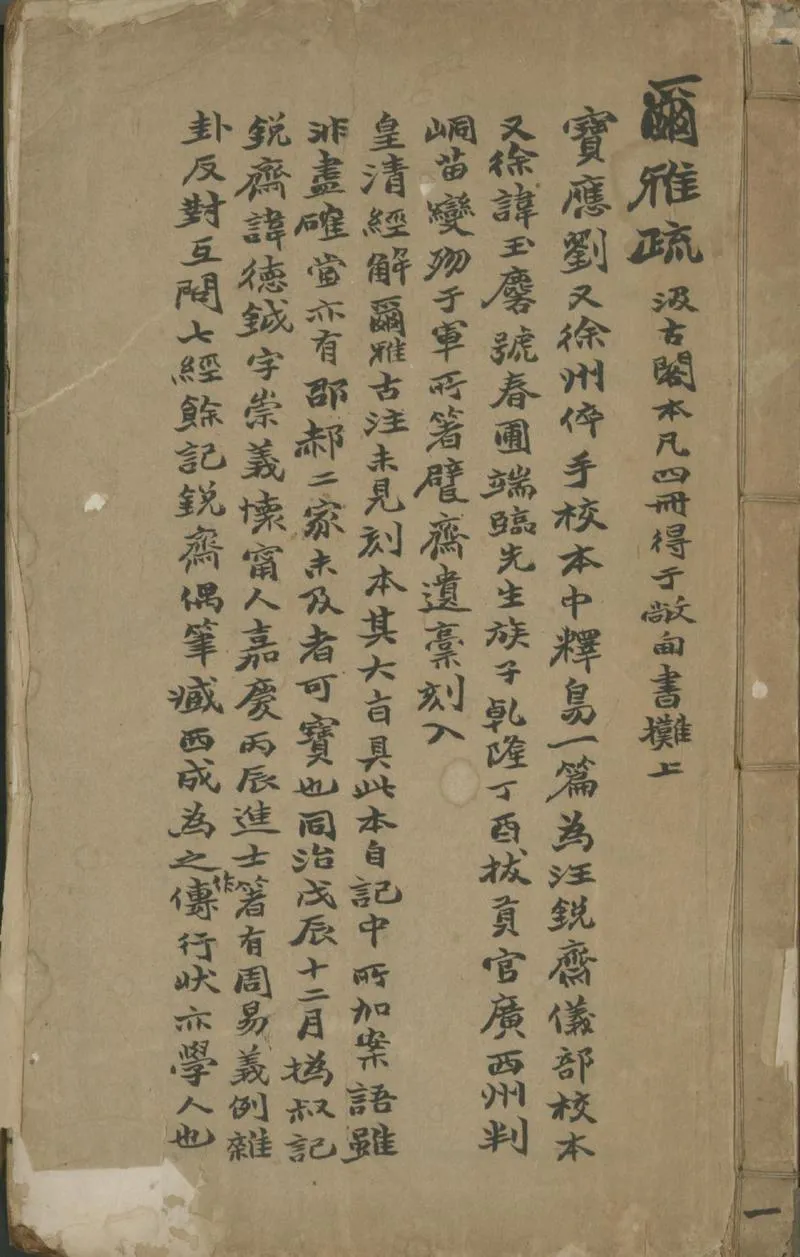 爾雅疏 汲古閣本凡四冊得于敞甸書攤上
寶應劉又徐州倅手校本中釋鳥一篇為汪銳齋儀部校本
又徐諱玉麐號春圃端臨先生族子乾隆丁酉拔貢官廣西州判
峒苗變歿于軍所箸甓齋遺稾刻入
皇清經解爾雅古注未見刻本其大旨具此本自記中所加案語雖
非盡確當亦有邵郝二家未及者可寶也同治戊辰十二月撝叔記
銳齋諱德鉞字崇義懷甯人嘉慶丙辰進士箸有周易義例雜
卦反對互問七經餘記銳齋偶筆臧西成為之作傳行狀亦學人也
一